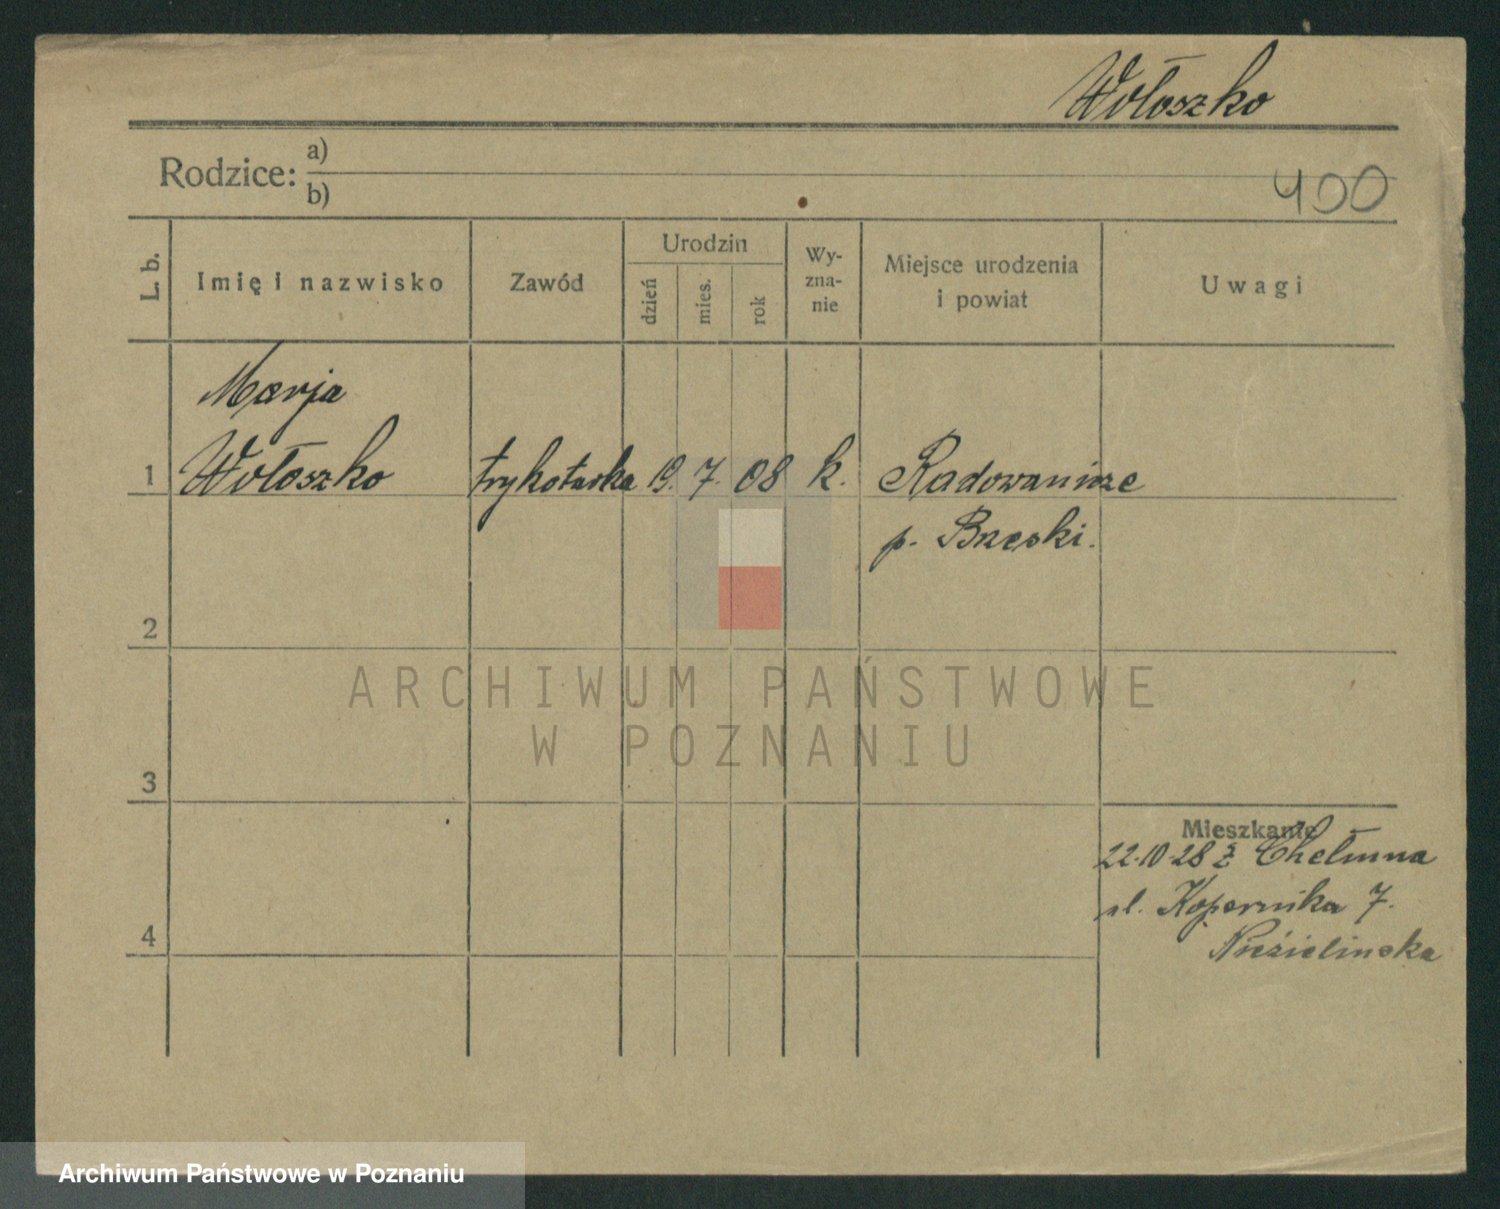 Wołoszko
Rodzice: a)
b)
400
L. b.
Imię i nazwisko
Zawód
Urodzin
dzień
mies.
rok
Wy-
zna-
nie
Miejsce urodzenia
i powiat
Uwagi
Marja
1 Wołoszko trykotarka 19. 7. 08 k.
p. Brzeski.
2
ARCHIWUM PAŃSTWOWE
W POZNANIU
3
Mieszkanie
22.10.28 z Chełmna
ul. Kopernika 7.
4
Archiwum Państwowe w Poznaniu